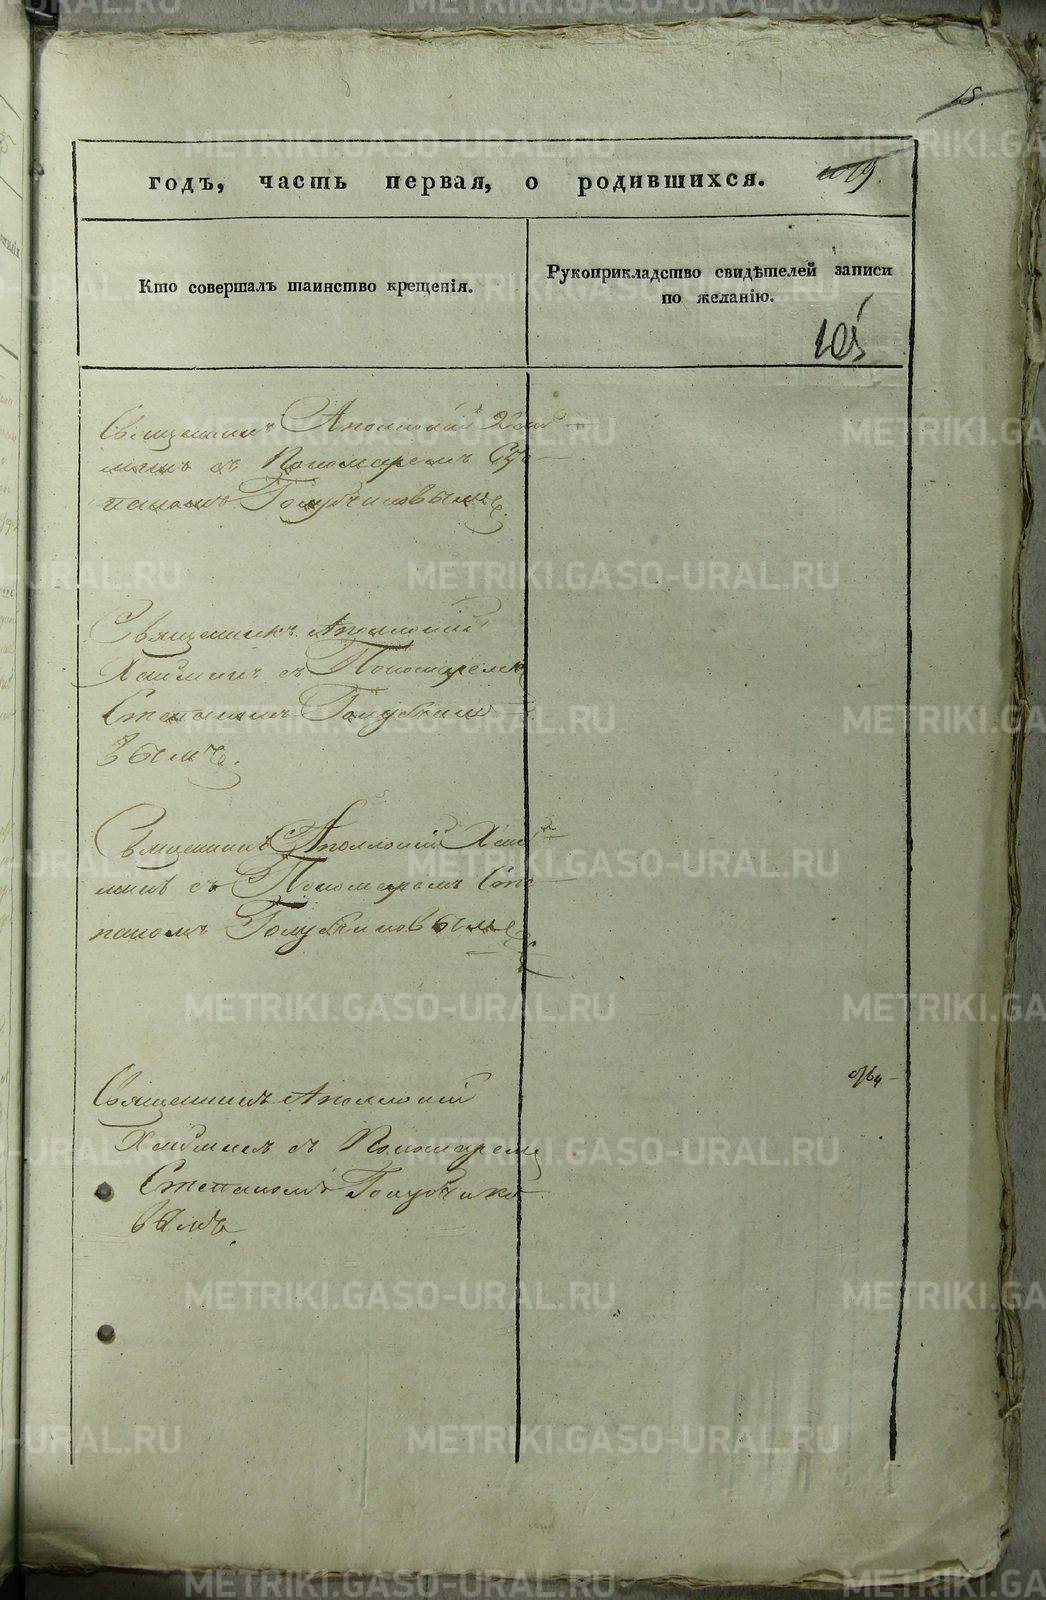 15.
19.
годъ, часть первая, о родившихся.
Кто совершалъ таинство крещенія.
Рукоприкладство свидѣтелей записи
по желанію.
105
Священникъ Аполлоній Хай
минъ съ Пономаремъ Сте
паномъ Голубчиковымъ.
Священникъ Аполлоній
Хайминъ съ Пономаремъ
Степаномъ Голубчико
вымъ.
Священникъ Аполлоній Хай
минъ съ Пономаремъ Сте
паномъ Голубчиковымъ
Священникъ Аполлоній
Хайминъ съ Пономаремъ
Степаномъ Голубчико
вымъ.
METRIKI.GASO-URAL.RU